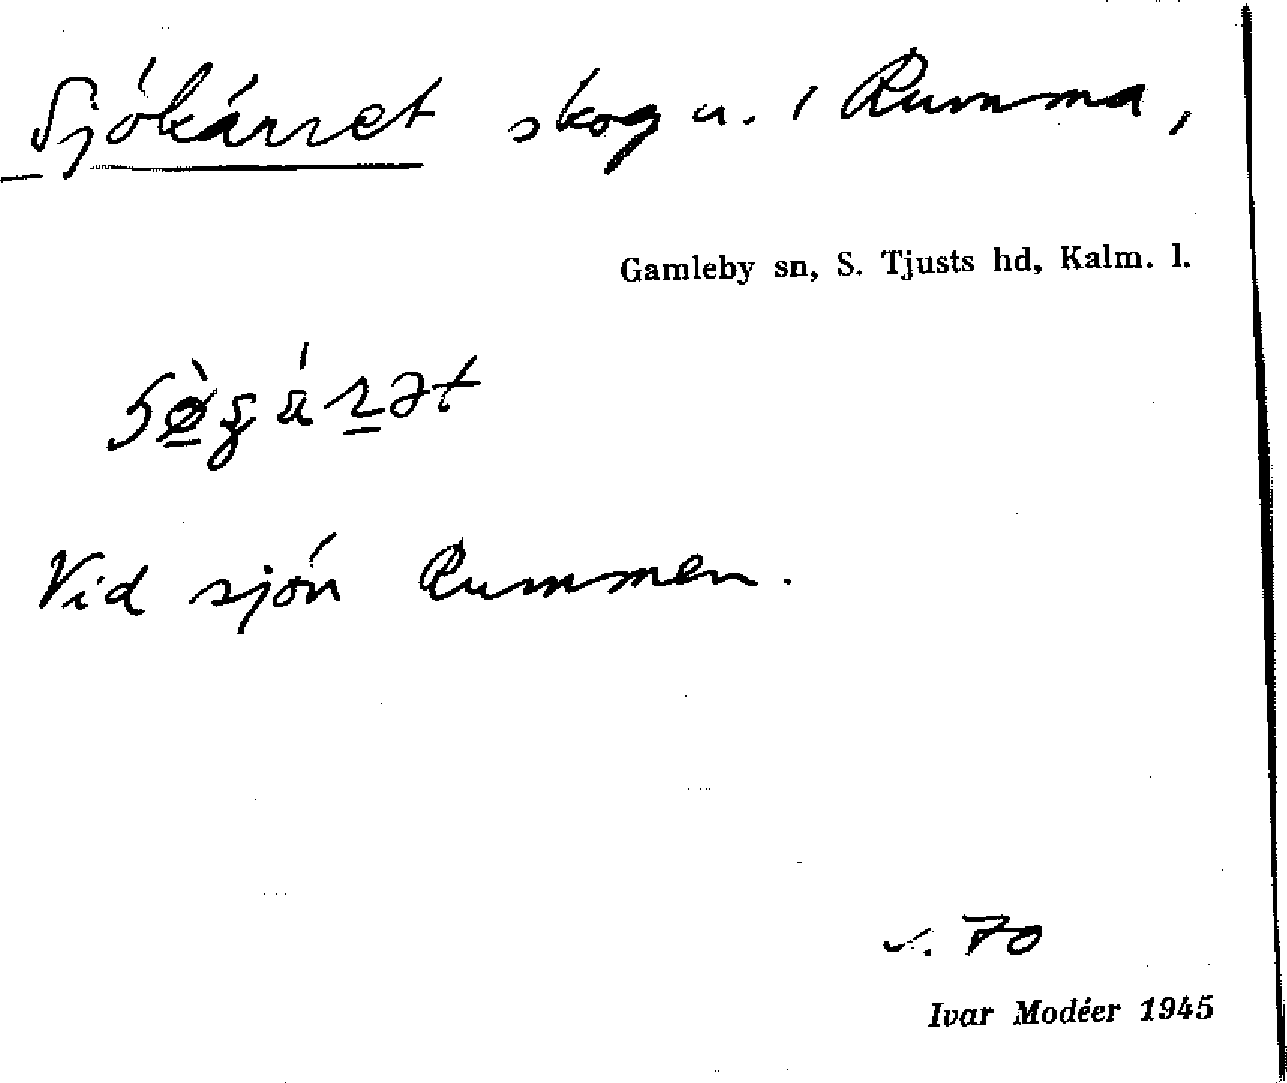 Sjökärret skog u. i Rumma,
Gamleby sn, S. Tjusts hd, Kalm. l.
Vid sjön Rummen.
70
Ivar Modéer 1945